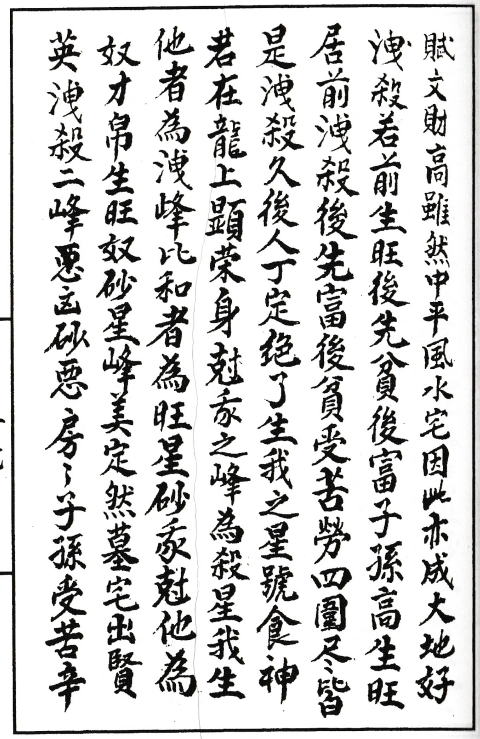 賦文財高雖然中平風水宅因此亦成大地好
洩殺若前生旺後先貧後富子孫高生旺
居前洩殺後先富後貧受苦勞四圍尽皆
是洩殺久後人丁定绝了生我之星號食神
若在龍上顯荣身尅我之峰為殺星我生
他者為洩峰比和者為旺星砂我尅他為
奴才帛生旺奴砂星峰美定然墓宅出賢
英洩殺二峰悪凶砂悪房〻子孫受苦辛